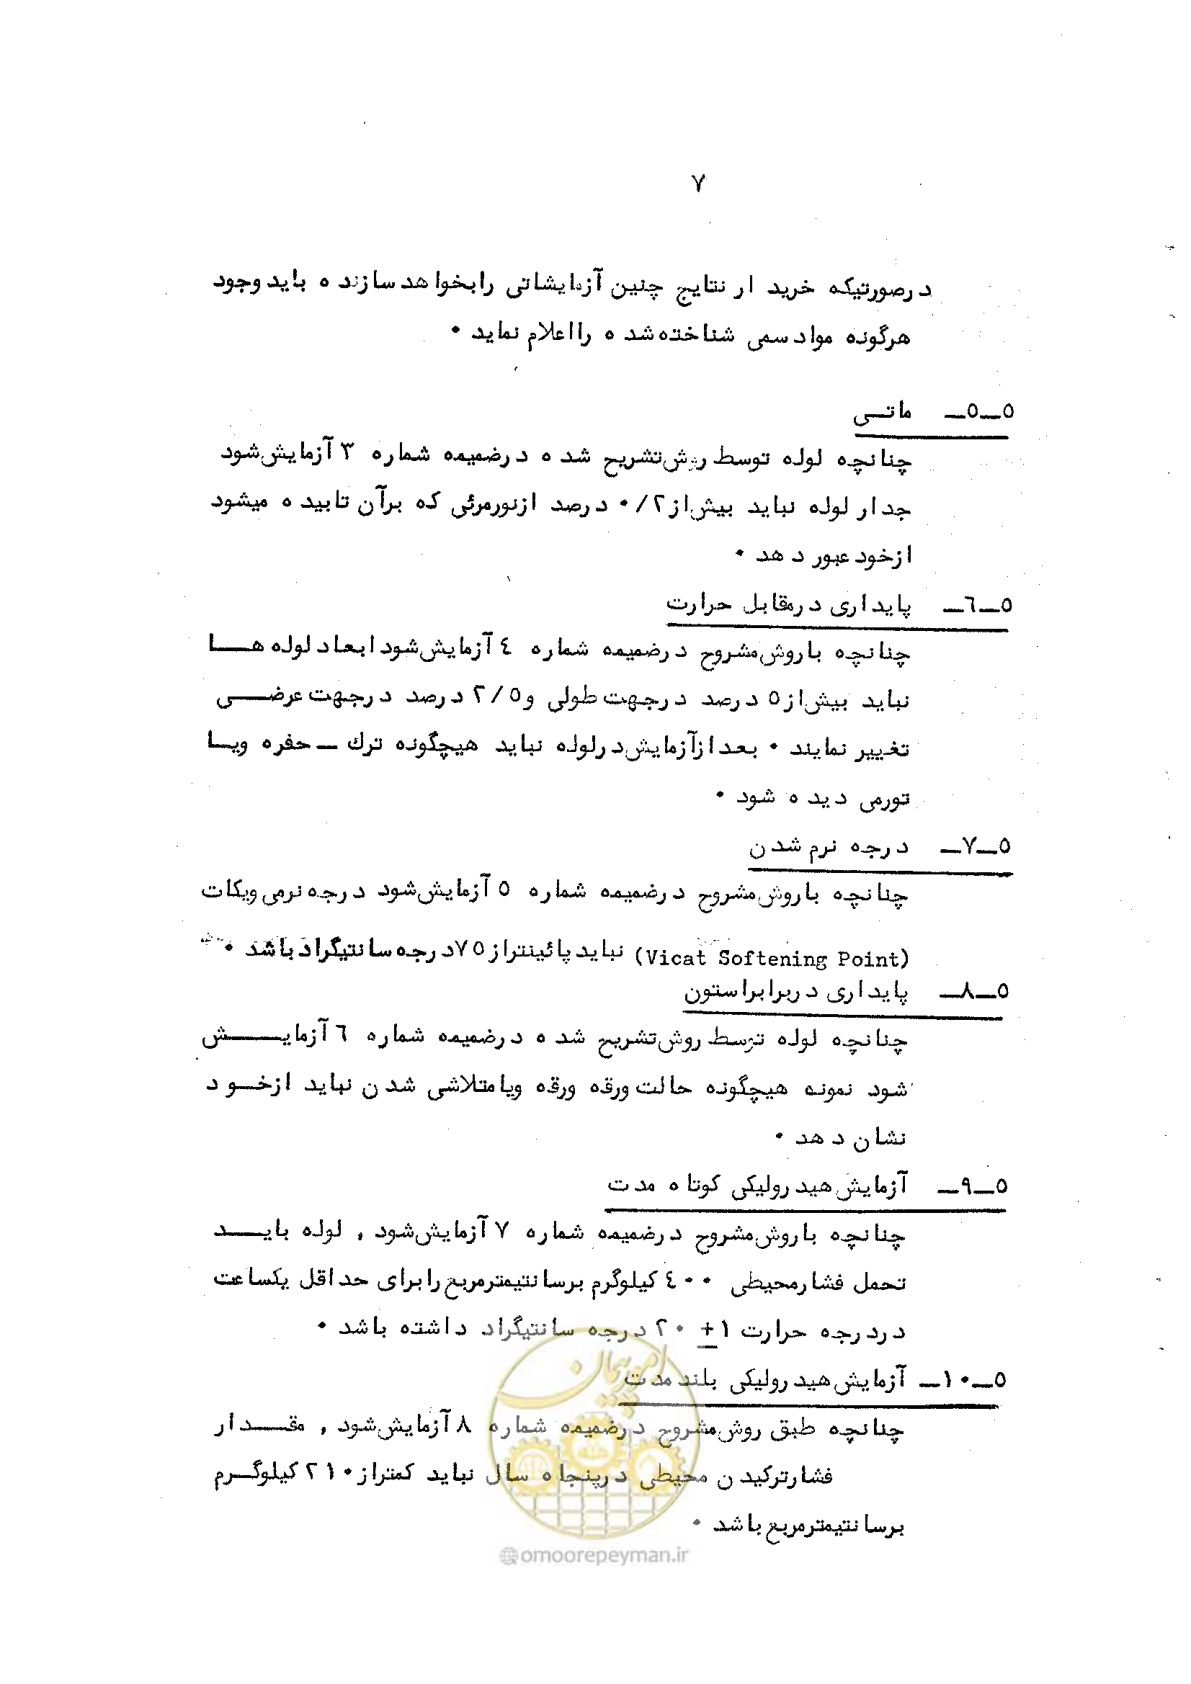 ۷
درصورتیکه خریدار نتایج چنین آزمایشاتی رابخواهد سازنده باید وجود
هرگونه مواد سمی شناخته‌شده رااعلام نماید ۰
۵ــ۵ــ ماتــی
چنانچه لوله توسط روش‌تشریح شده درضمیمه شماره ۳ آزمایش‌شود
جدار لوله نباید بیش‌از ۰/۲ درصد ازنورمرئی که برآن تابیده میشود
ازخود عبور دهد ۰
۵ــ۶ــ پایداری درمقابل حرارت
چنانچه باروش‌مشروح درضمیمه شماره ۴ آزمایش‌شود ابعاد لوله هــا
نباید بیش‌از ۵ درصد درجهت طولی و ۲/۵ درصد درجهت عرضــی
تغییر نمایند ۰ بعد ازآزمایش‌درلوله نباید هیچگونه ترك ــ حفره ویــا
تورمی دیده شود ۰
۵ــ۷ــ درجه نرم شدن
چنانچه باروش‌مشروح درضمیمه شماره ۵ آزمایش‌شود درجه نرمی ویکات
(Vicat Softening Point) نباید پائینتراز ۷۵ درجه سانتیگراد باشد ۰
۵ــ۸ــ پایداری دربرابراستون
چنانچه لوله توسط روش‌تشریح شده درضمیمه شماره ۶ آزمایــش
شود نمونه هیچگونه حالت ورقه ورقه ویامتلاشی شدن نباید ازخــود
نشان دهد ۰
۵ــ۹ــ آزمایش‌هیدرولیکی کوتاه مدت
چنانچه باروش‌مشروح درضمیمه شماره ۷ آزمایش‌شود , لوله بایــد
تحمل فشارمحیطی ۴۰۰ کیلوگرم برسانتیمترمربع رابرای حداقل یکساعت
دردرجه حرارت ۱ ± ۲۰ درجه سانتیگراد داشته باشد ۰
۵ــ۱۰ــ آزمایش‌هیدرولیکی بلند مدت
چنانچه طبق روش‌مشروح درضمیمه شماره ۸ آزمایش‌شود , مقــدار
فشارترکیدن محیطی درپنجاه سال نباید کمتراز ۲۱۰ کیلوگــرم
برسانتیمترمربع باشد ۰
امور پیمان
@omoorepeyman.ir